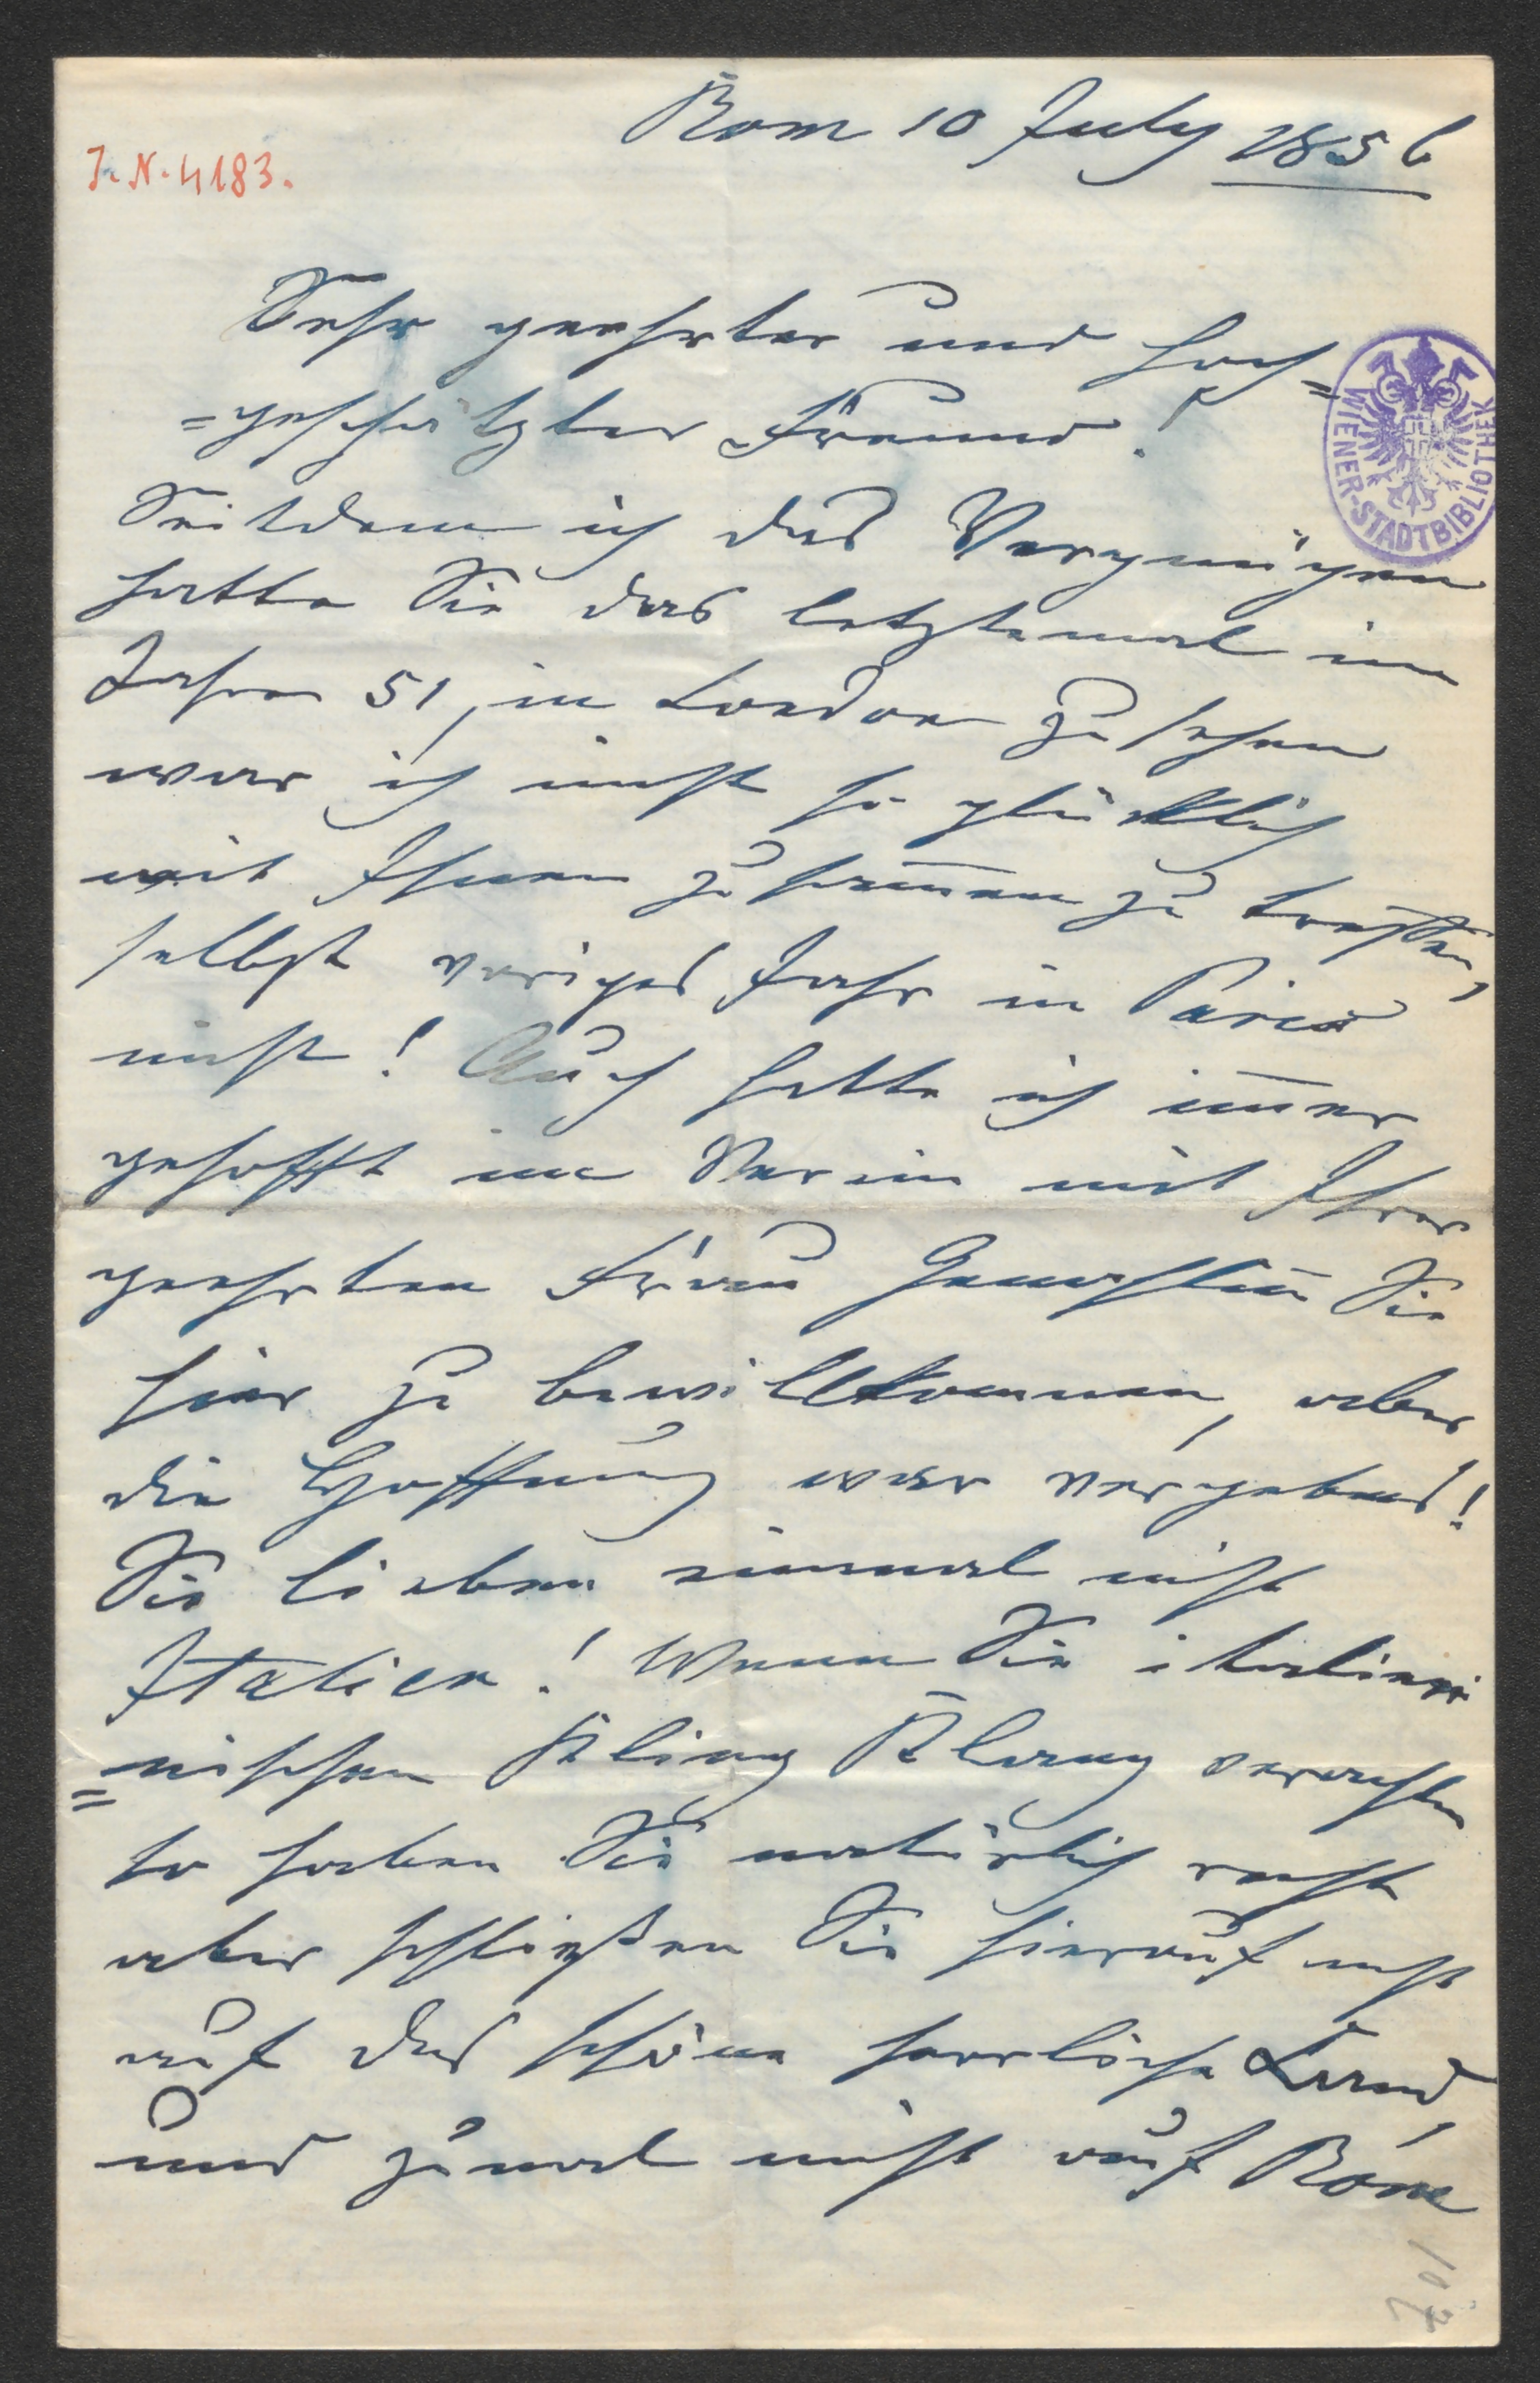 Rom 10 July 1856
J. N. 4183.
Sehr geehrter und hoch=
=geschätzter Freund!
WIENER-STADTBIBLIOTHEK
Seitdem ich das Vergnügen
hatte Sie das letztemal im
Jahre 51, in London zu sehen
war ich nicht so glücklich
mit Ihnen zusam̄en zu treffen,
selbst voriges Jahr in Paris
nicht! Auch hatte ich im̄er
gehofft im Verein mit Ihrer
geehrten Frau Gemahlin Sie
hier zu bewillkommnen, aber
die Hoffnung war vergebens!
Sie lieben einmal nicht
Italien! Wenn Sie italieni
=nischen Kling Klang verachten
so haben Sie natürlich recht
aber schließen Sie hierauf nicht
auf das schöne herrliche Land,
und zumal nicht auf Rom
107